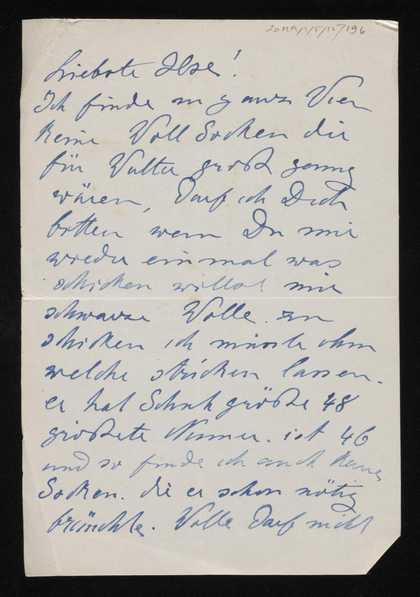 Liebste Ilse!
Ich finde in ganz Vien
keine Voll Socken die
für Valter groß genug
wären, Darf ich Dich
bitten wenn Du mir
wieder einmal was
schicken willst mir
schwarze Wolle zu
schicken ich müsste ihm
welche stricken lassen.
er hat Schuhgröße 48
größte Numer. ist 46
und so finde ich auch keine
Socken. die er schon nötig
bräuchte. Wolle Darf nicht